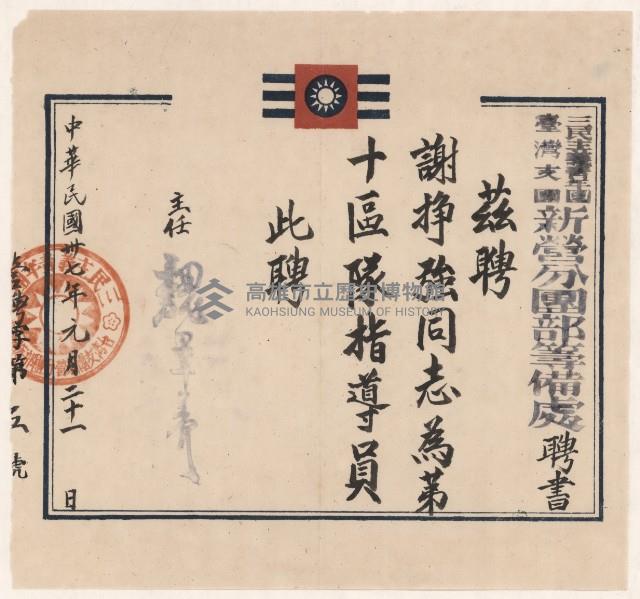 三民主義青年團
臺灣支團
新營分團部籌備處聘書
茲聘
謝掙強同志為第
十區隊指導員
此聘
主任
中華民國卅七年元月二十一日
字第五號
高雄市立歷史博物館
KAOHSIUNG MUSEUM OF HISTORY